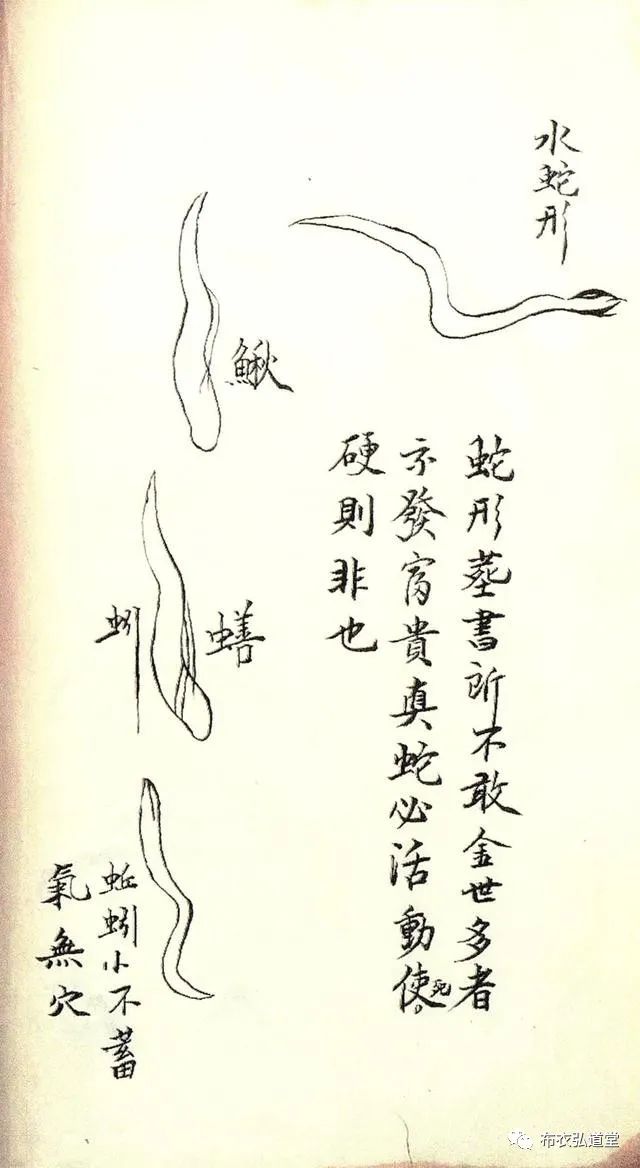 水蛇形
蛇形塟書所不敢金世多者
示發富貴真蛇必活動使死
硬則非也
鰍
蟮
蚓
蚯蚓小不蓄
氣無穴
布衣弘道堂